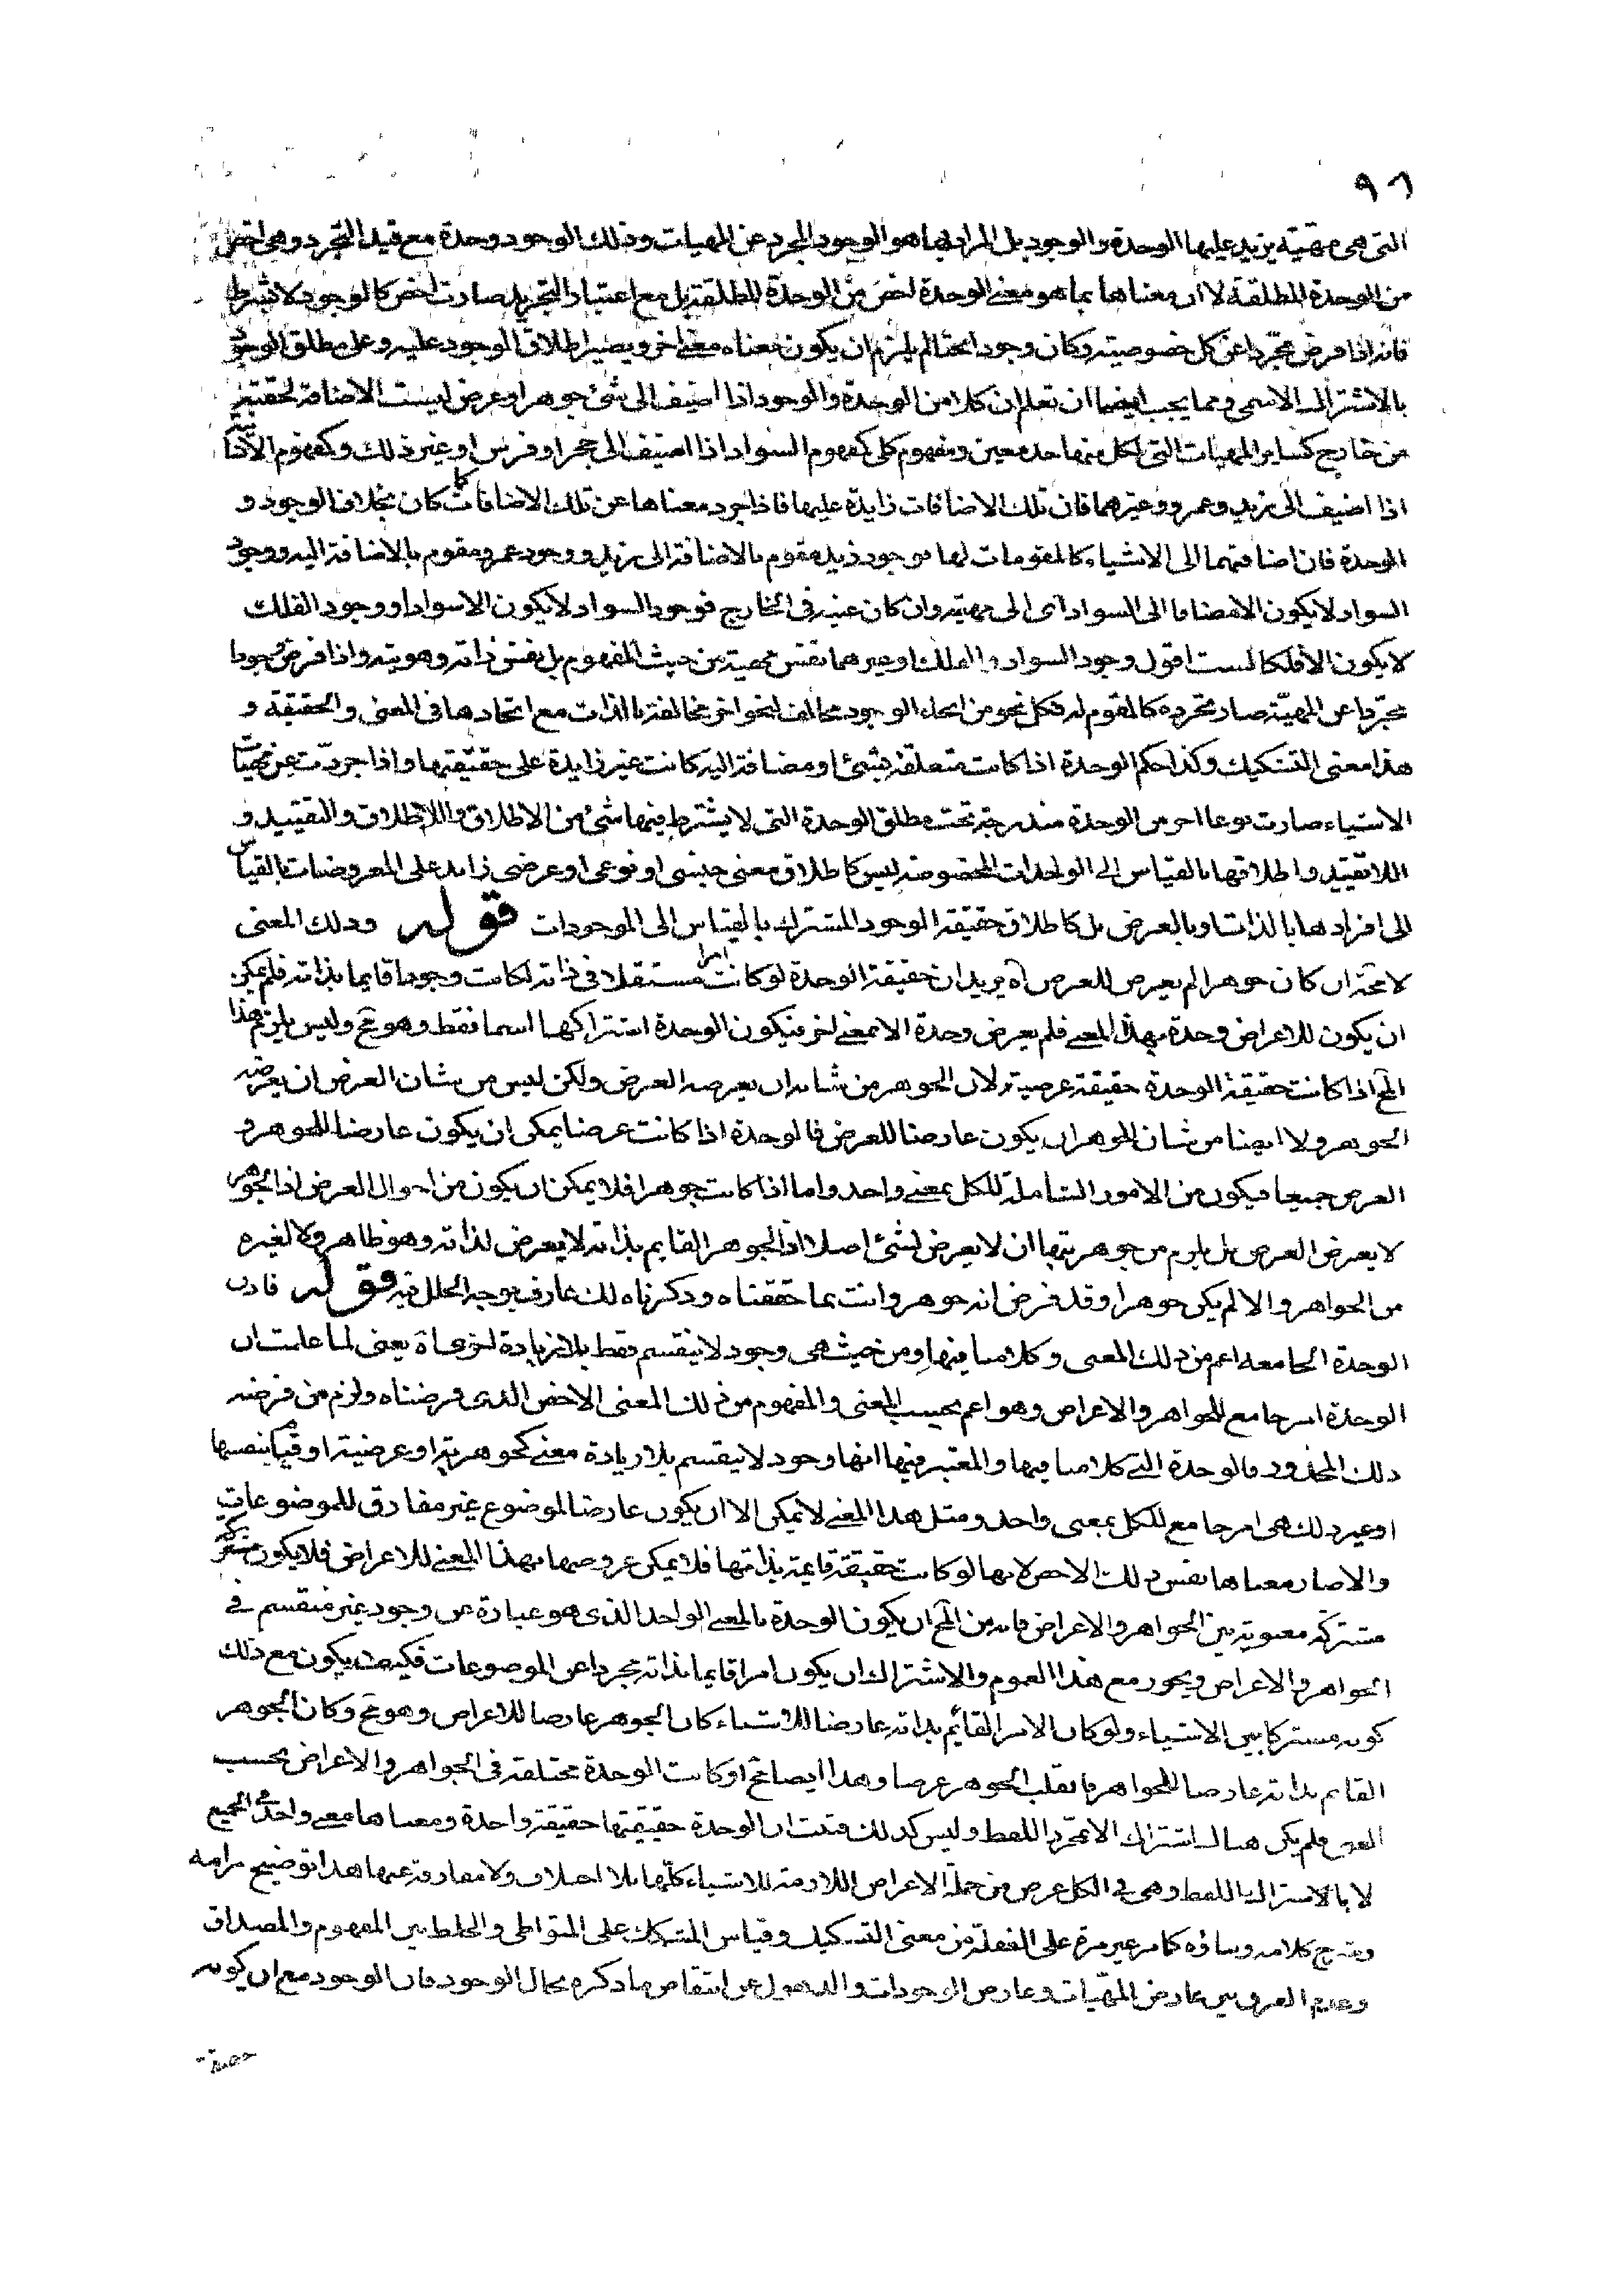 ٩٦
التى هى مهيته يزيد عليها الوحدة والوجود بل المراد بها هو الوجود المجرد عن المهيات وذلك الوجود وحدة مع قيد التجرد وهى اخص
من الوحدة المطلقة لا ان معناها بما هو معنى الوحدة اخص من الوحدة المطلقة بل مع اعتبار التجريد صارت اخص كالوجود لا بشرط
فانه اذا فرض مجردا عن كل خصوصية وكان وجودا بحتا لم يلزم ان يكون معناه معنى اخر ويصير اطلاق الوجود عليه وعلى مطلق الوجود
بالاشتراك الاسمى ومما يجب ايضا ان تعلم ان كلا من الوحدة والوجود اذا اضيف الى شئ جوهر او عرض ليست الاضافة لحقيقته
من خارج كساير المهيات التى لكل منها حد معين ومفهوم كلى كمفهوم السواد اذا اضيف الى حجر او فرس او غير ذلك وكمفهوم الانسان
اذا اضيف الى زيد وعمرو وغيرهما فان تلك الاضافات زايدة عليها فاذا جرد معناها عن تلك الاضافات كان كما كان بخلاف الوجود و
الوحدة فان اضافتهما الى الاشياء كالمقومات لها فوجود زيد مقوم بالاضافة الى زيد ووجود عمرو مقوم بالاضافة اليه ووجود
السواد لا يكون الا مضافا الى السواد اى الى مهيته وان كان عينه فى الخارج فوجود السواد لا يكون الا سوادا ووجود الفلك
لا يكون الا فلكا لست اقول وجود السواد والفلك وغيرهما نفس مهيته من حيث المفهوم بل نفس ذاته وهويته واذا فرض وجودا
مجردا عن المهية صار تجرده كالمقوم له فكل نحو من انحاء الوجود مخالف لنحو اخر مخالفة بالذات مع اتحادها فى المعنى والحقيقة و
هذا معنى التشكيك وكذا حكم الوحدة اذا كانت متعلقة بشئ او مضافة اليه كانت غير زايدة على حقيقتها واذا جردت عن مهيات
الاشياء صارت نوعا اخر من الوحدة مندرجة تحت مطلق الوحدة التى لا يشترط فيها شئ من الاطلاق واللااطلاق والتقييد و
اللاتقييد واطلاقها بالقياس الى الواحدات المخصوصة ليس كاطلاق معنى جنسى او نوعى او عرضى زايد على المعروضات بالقياس
الى افرادها بالذات او بالعرض بل كاطلاق حقيقة الوجود المشترك بالقياس الى الموجودات قوله وذلك المعنى
لا محة ان كان جوهرا لم يعرض للعرض آه يريد ان حقيقة الوحدة لو كانت امرا مستقلا فى ذاته لكانت وجودا قايما بذاته فلم يمكن
ان يكون للاعراض وحدة بهذا المعنى فلم يعرض وحدة الا بمعنى اخر فيكون الوحدة اشتراكها اسما فقط وهو مح وليس يلزم هذا
المح اذا كانت حقيقة الوحدة حقيقة عرضية لان الجوهر من شانه ان يعرضه العرض ولكن ليس من شان العرض ان يعرضه
الجوهر ولا ايضا من شان الجوهر ان يكون عارضا للعرض فالوحدة اذا كانت عرضا يمكن ان يكون عارضا للجوهر و
العرض جميعا فيكون من الامور الشاملة للكل بمعنى واحد واما اذا كانت جوهرا فلا يمكن ان يكون من احوال العرض اذ الجوهر
لا يعرض العرض بل يلزم من جوهريتها ان لا يعرض لشئ اصلا اذ الجوهر القايم بذاته لا يعرض لذاته وهو ظاهر ولا لغيره
من الجواهر والا لم يكن جوهرا وقد فرض انه جوهر وانت بما حققناه وذكرناه لك عارف بوجه الخلل فيه قوله فاذن
الوحدة الجامعه اعم من ذلك المعنى وكلامنا فيها ومن حيث هى وجود لا ينقسم فقط بلا زيادة اخرى آه يعنى لما علمت ان
الوحدة امر جامع للجواهر والاعراض وهو اعم بحسب المعنى والمفهوم من ذلك المعنى الاخص الذى فرضناه ولزم من فرضه
ذلك المحذور فالوحدة التى كلامنا فيها والمعتبر فيها انها وجود لا ينقسم بلا زيادة معنى كجوهرية او عرضية او قيامها بنفسها
او غير ذلك هى امر جامع للكل بمعنى واحد ومثل هذا المعنى لا يمكن الا ان يكون عارضا لموضوع غير مفارق للموضوعات
والا صار معناها نفس ذلك الاخص لانها لو كانت حقيقة قايمة بذاتها فلا يمكن عروضها بهذا المعنى للاعراض فلا يكون مشتركة
مشتركة معنوية بين الجواهر والاعراض فانه من المح ان يكون الوحدة بالمعنى الواحد الذى هو عبارة عن وجود غير منقسم فى
الجواهر والاعراض ويجوز مع هذا العموم والاشتراك ان يكون امرا قايما بذاته مجردا عن الموضوعات فكيف يكون مع ذلك
كونه مشتركا بين الاشياء ولو كان الامر القائم بذاته عارضا للاشياء كان الجوهر عارضا للاعراض وهو مح وكان الجوهر
القايم بذاته عارضا للجواهر فانقلب الجوهر عرضا وهذا ايضا مح او كانت الوحدة مختلفة فى الجواهر والاعراض بحسب
المعنى فلم يكن هناك اشتراك الا بمجرد اللفظ وليس كذلك فثبت ان الوحدة حقيقتها حقيقة واحدة ومعناها معنى واحد فى الجميع
لا بالاشتراك اللفظ وهى فى الكل عرض من جملة الاعراض اللازمة للاشياء كلها بلا اختلاف ولا مفارقة عنها هذا توضيح مرامه
وشرح كلامه وبناؤه كما مر غير مرة على الغفلة من معنى التشكيك وقياس المشكك على المتواطى والخلط بين المفهوم والمصداق
وعدم الفرق بين عارض المهيات وعارض الوجودات والذهول عن انتقاض ما ذكره بحال الوجود فان الوجود مع ان كونه
حصة